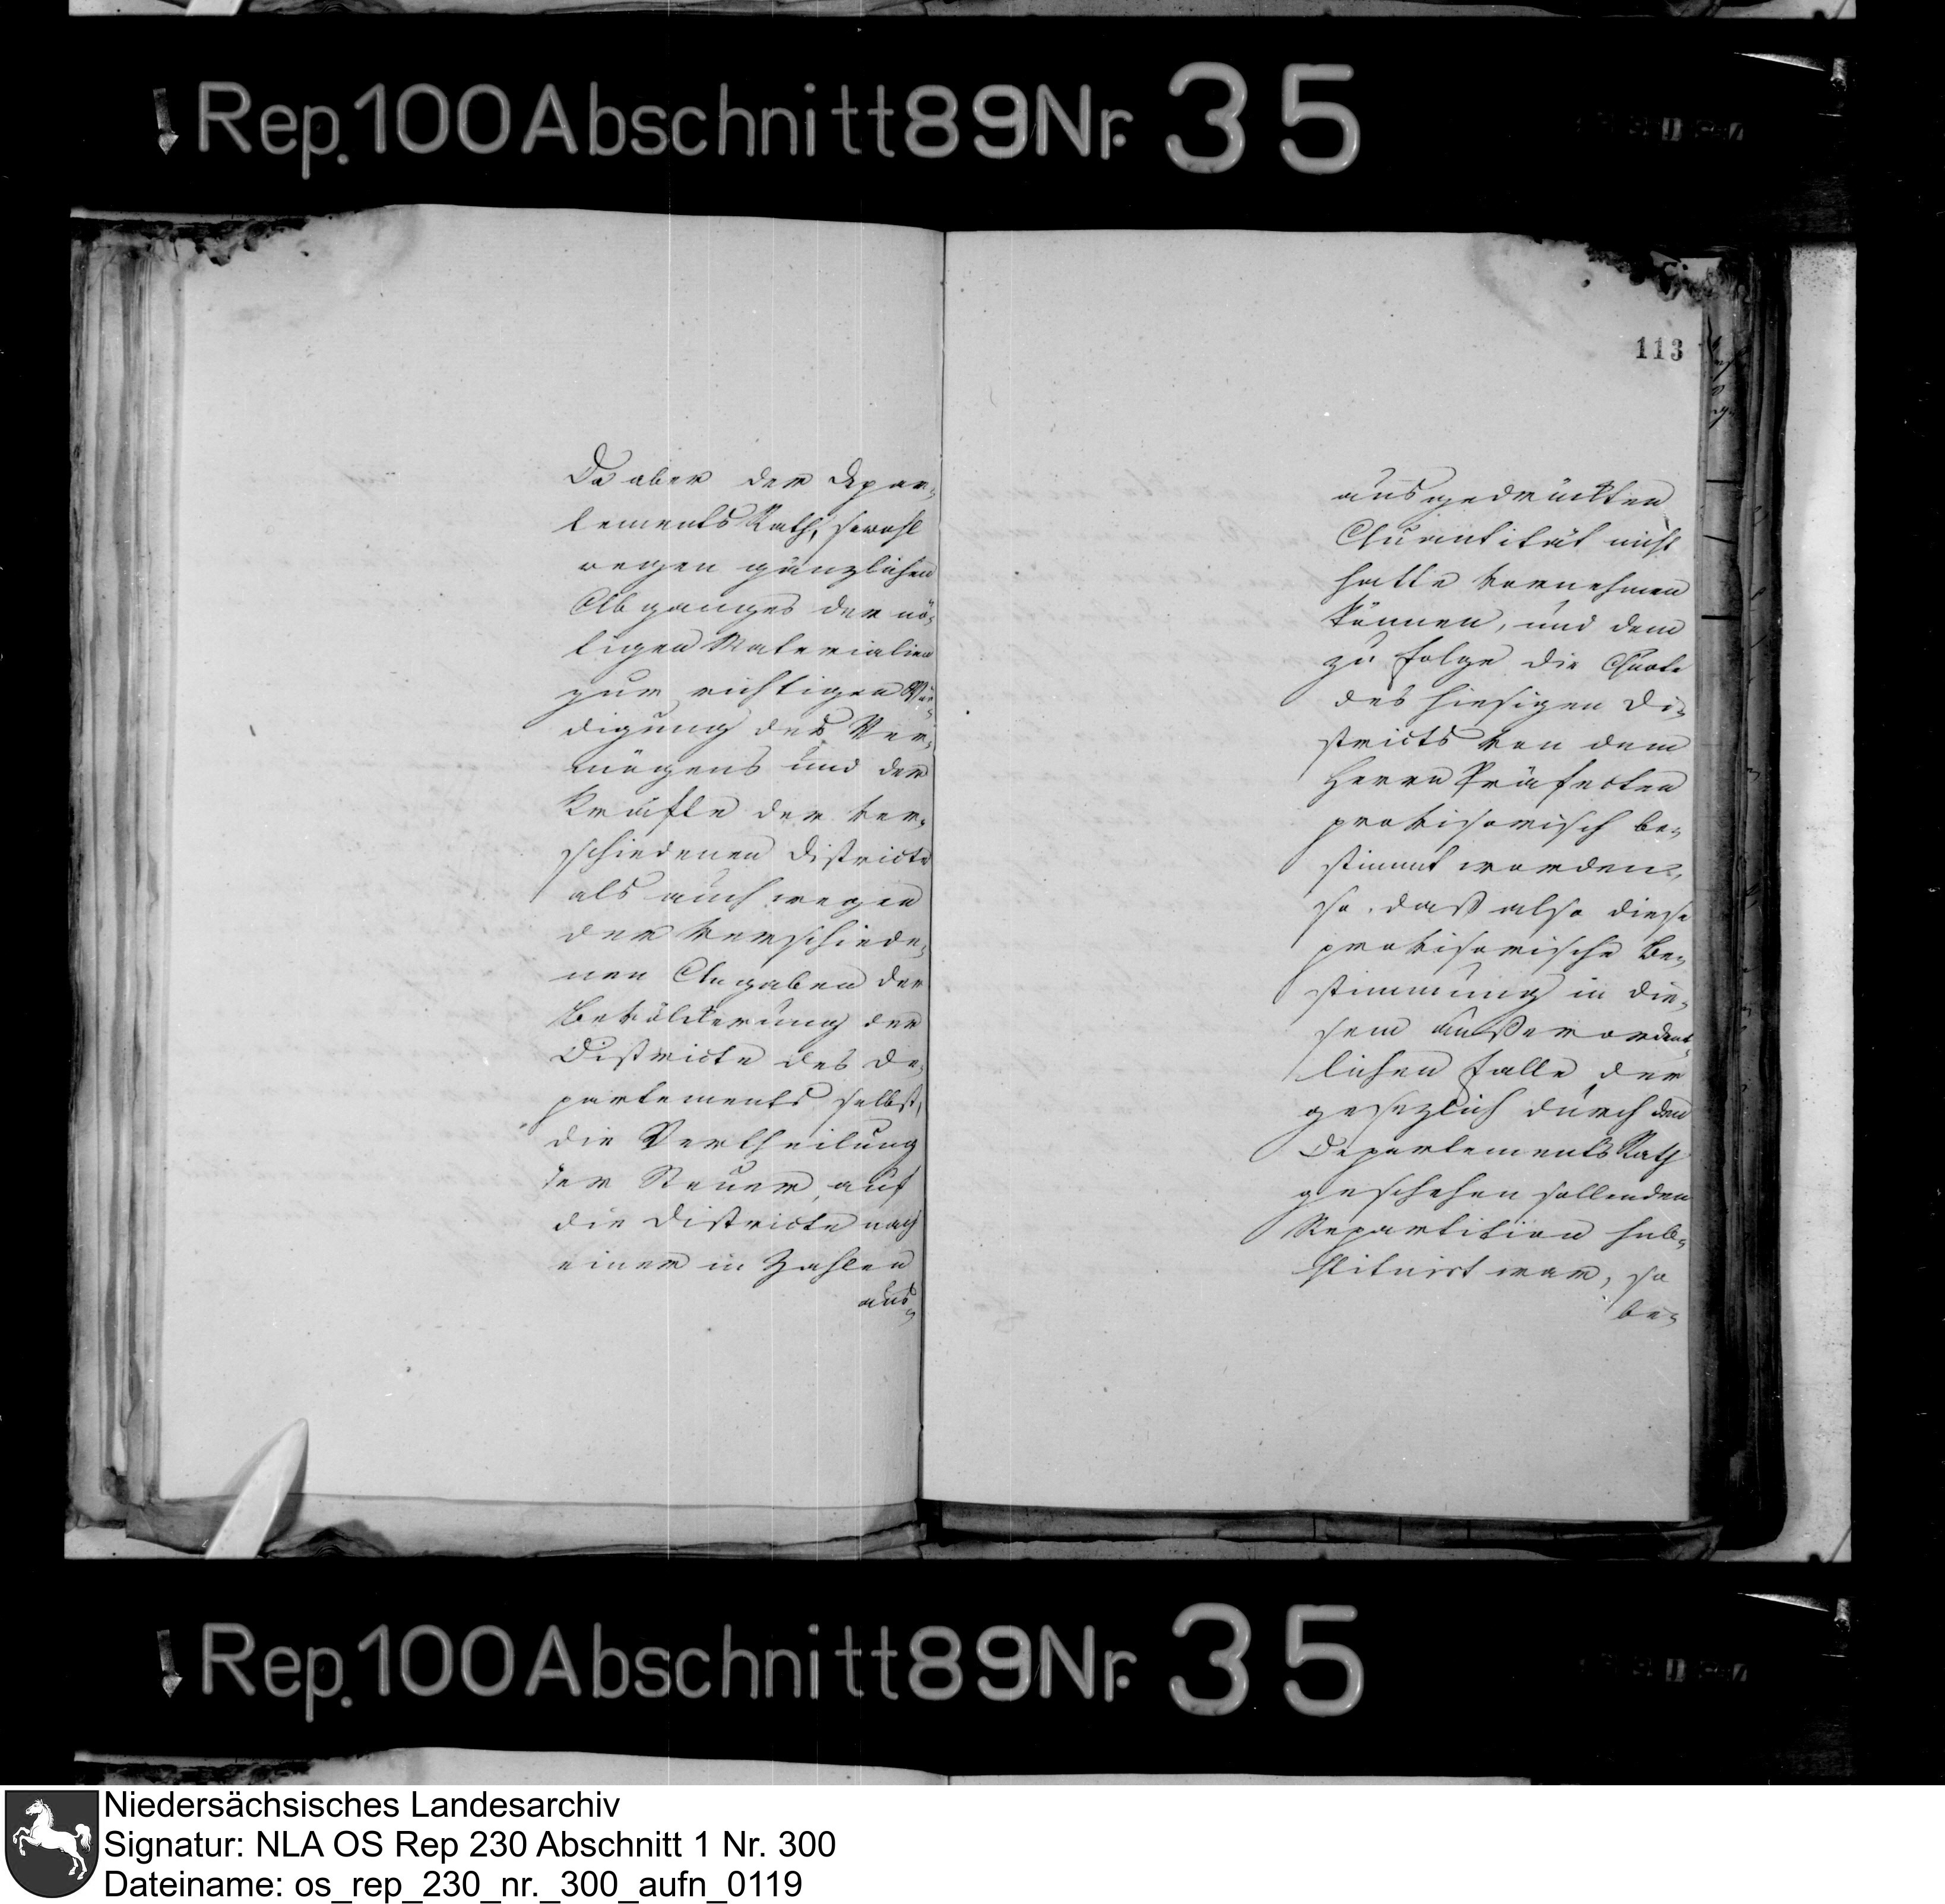 Rep. 100 Abschnitt 89 Nr. 35
Da aber der Depar-
tements Rath, sowohl
wegen gänzlichen
Abganges der nö-
tigen Materialien
zur richtigen Wür-
digung des Ver-
mögens und der
Kräfte der ver-
schiedenen Districte
als auch wegen
der verschiede-
nen Angaben der
Bevölckerung der
Districte des De-
partements selbst,
die Vertheilung
der Steuer, auf
die Districte nach
einer in Zahlen
aus-
113
ausgedrückten
Quantität nicht
hatte vornehmen
können, und dem
zu folge die Quote
des hiesigen Di-
stricts von dem
Herrn Präfecten
provisorisch be-
stimmt worden,
so daß also diese
provisorische Be-
stimmung in die-
sem außerordent-
lichen Falle der
gesezlich durch den
Departements Rath
geschehen sollenden
Repartition sub-
stituirt war, so
be-
Rep. 100 Abschnitt 89 Nr. 35
Niedersächsisches Landesarchiv
Signatur: NLA OS Rep 230 Abschnitt 1 Nr. 300
Dateiname: os_rep_230_nr._300_aufn_0119